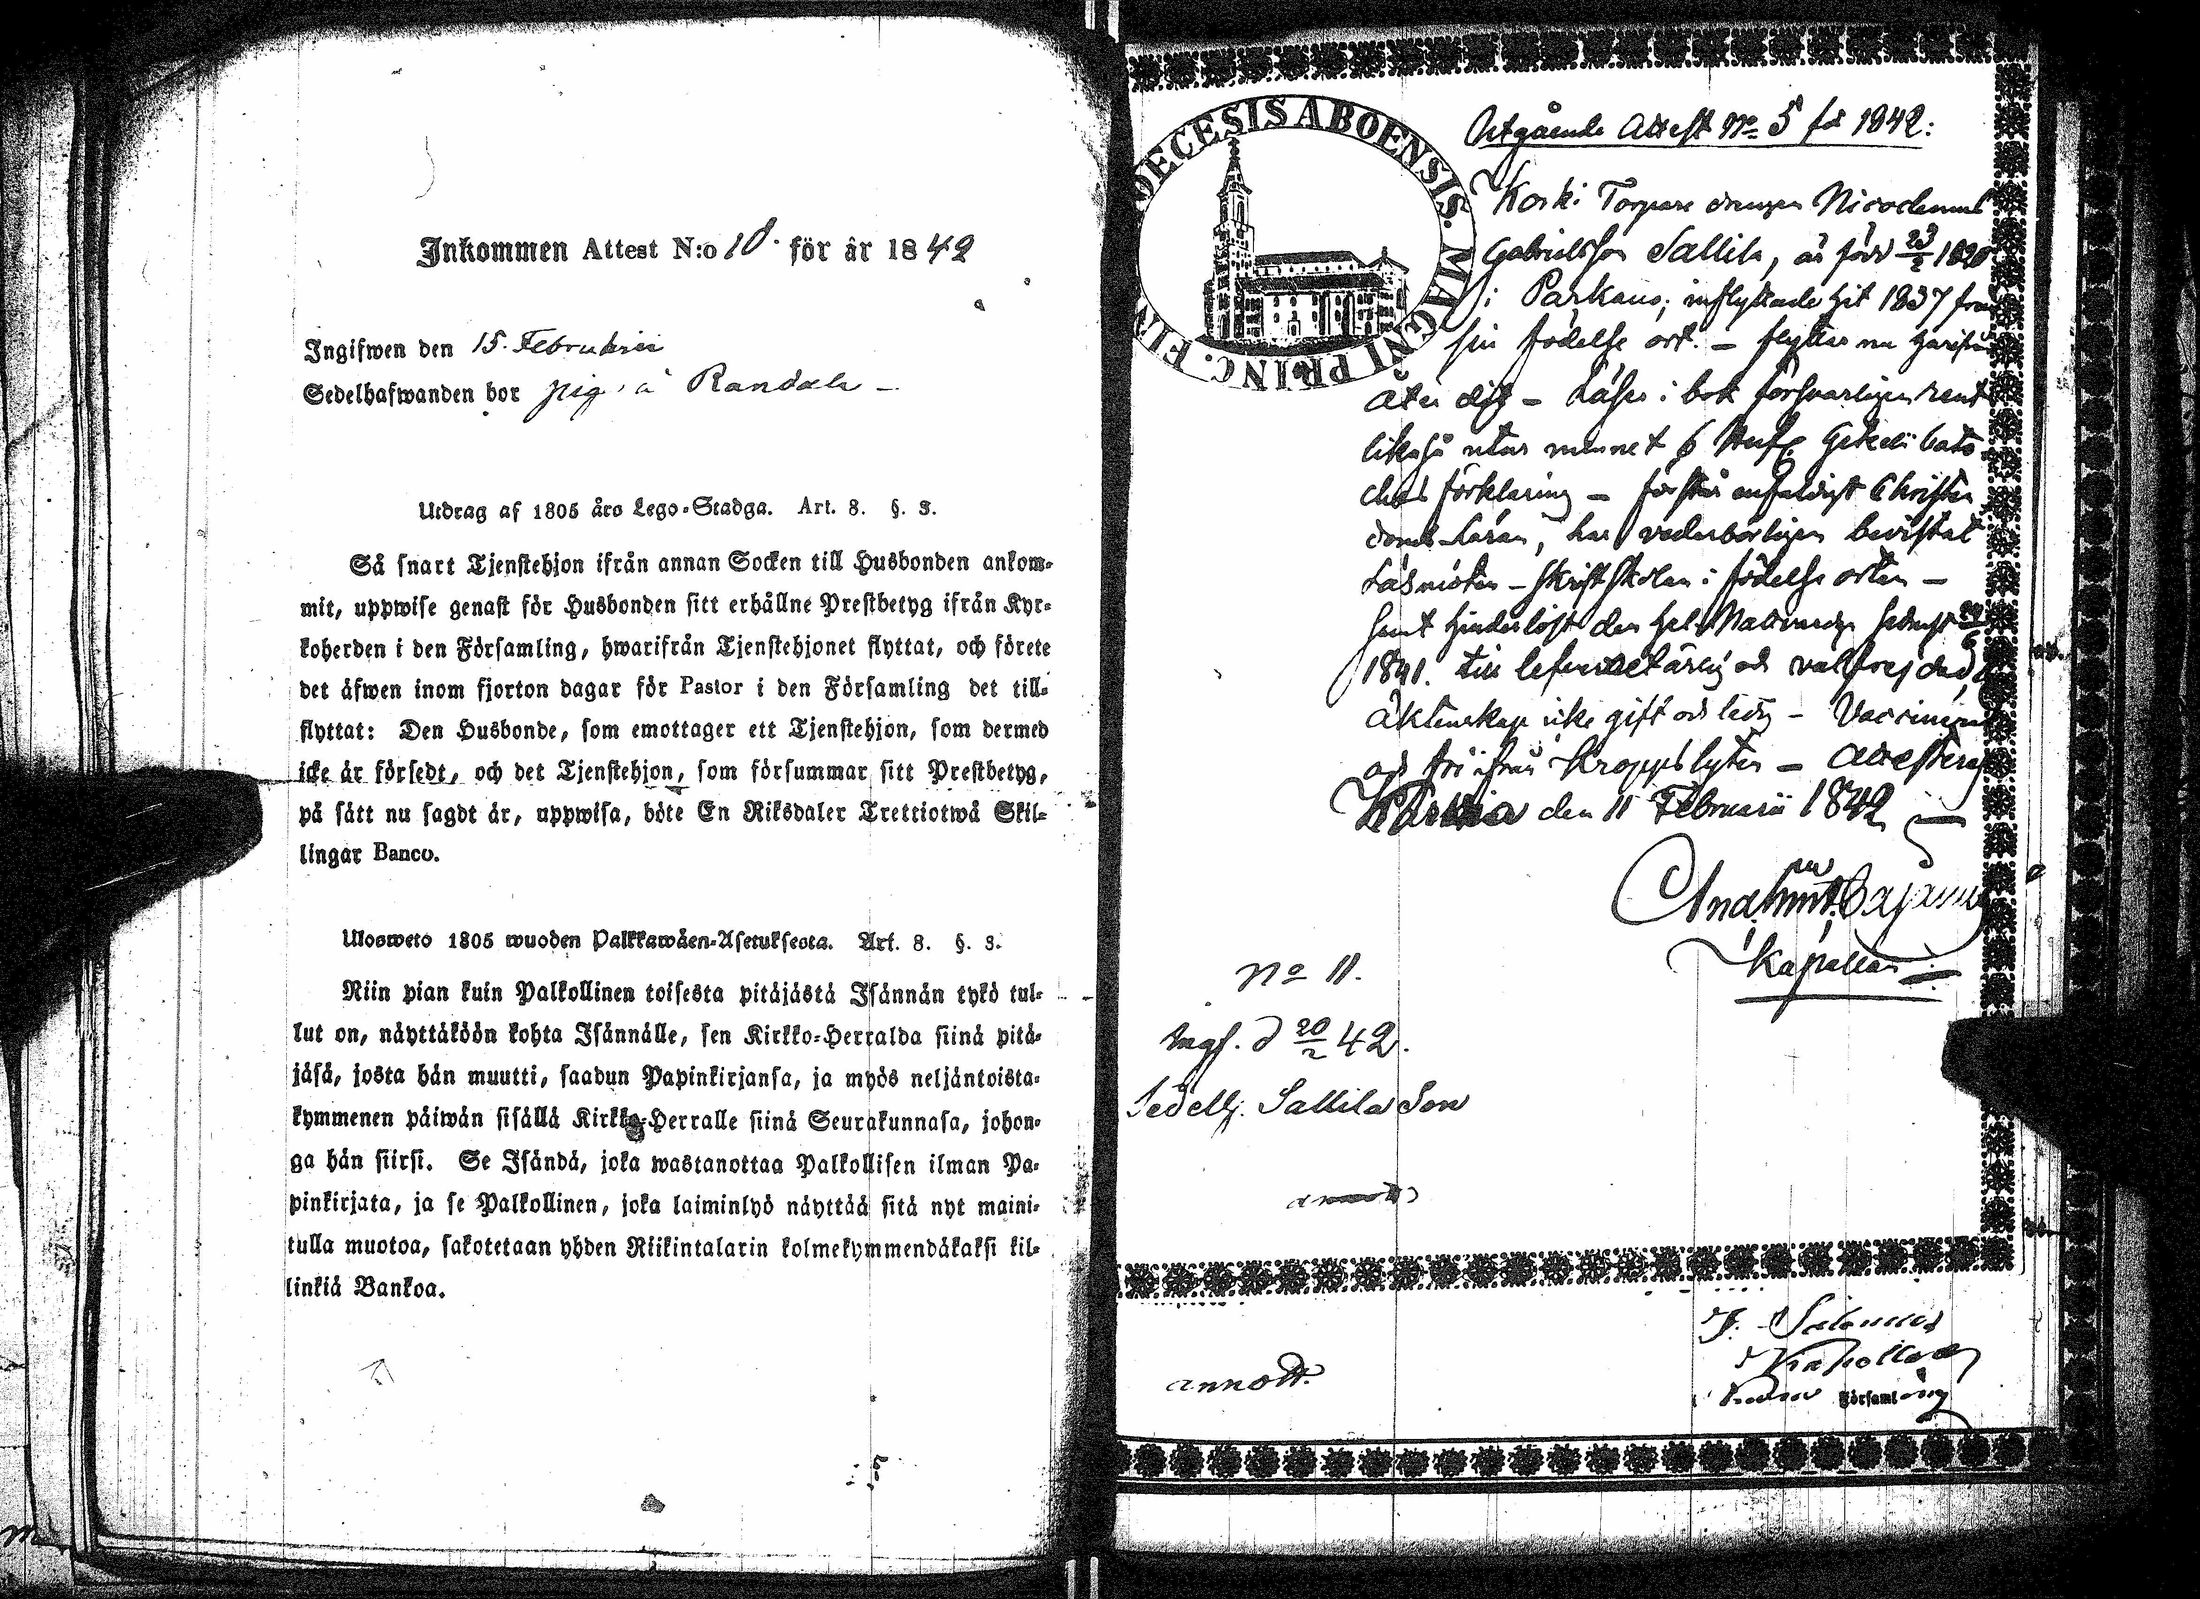 Inkommen Attest N:o 10. för år 1842
Ingifwen den 15. Februarii
Sedelhafwanden bor pig. å Randala –
Utdrag af 1805 års Lego-Stadga. Art. 8. §. 3.
Så snart Tjenstehjon ifrån annan Socken till Husbonden ankom-
mit, uppwise genast för Husbonden sitt erhållne Prestbetyg ifrån Kyr-
koherden i den Församling, hwarifrån Tjenstehjonet flyttat, och förete
det äfwen inom fjorton dagar för Pastor i den Församling det till-
flyttat: Den Husbonde, som emottager ett Tjenstehjon, som dermed
icke är försedt, och det Tjenstehjon, som försummar sitt Prestbetyg,
på sätt nu sagdt är, uppwisa, böte En Riksdaler Trettiotwå Skil-
lingar Banco.
Ulosweto 1805 wuoden Palkkawäen-Asetuksesta. Art. 8. §. 3.
Niin pian kuin Palkollinen toisesta pitäjästä Isännän tykö tul-
lut on, näyttäköön kohta Isännälle, sen Kirkko-Herralda siinä pitä-
jäsä, josta hän muutti, saadun Papinkirjansa, ja myös neljäntoista-
kymmenen päiwän sisällä Kirkko-Herralle siinä Seurakunnasa, johon-
ga hän siirsi. Se Isändä, joka wastanottaa Palkollisen ilman Pa-
pinkirjata, ja se Palkollinen, joka laiminlyö näyttää sitä nyt maini-
tulla muotoa, sakotetaan yhden Riikintalarin kolmekymmendäkaksi kil-
linkiä Bankoa.
DIOECESIS ABOENSIS. MAGNI PRINC. FIN
Utgående Attest No 5 för 1842:
Koski Torpare drengen Nicodemus
Gabrielsson Sallila, är född 23/2 1820
i Parkano; inflyttade hit 1837 från
sin födelse ort. – flyttar nu härifrån
åter dit – Läser i bok försvarligen rent
likaså utur minnet
förklaring – förstår enfaldigt Christen
doms Läran, har vederbörligen bevistat
Läsmöten – Skriftskolan i födelse orten –
samt hinderlöst den Hel. Nattvarden
1841. till lefvernet ärlig och välfrejdad,
Äktenskap icke gift och ledig – Vaccinerad
och fri ifrån kroppslyten – Attesteras
den 11 Februarii 1842
Cajanus
Kapellan
No 11.
Ingf. d 20/2 42.
Sedelh. Sallila Son
annott.
Församling